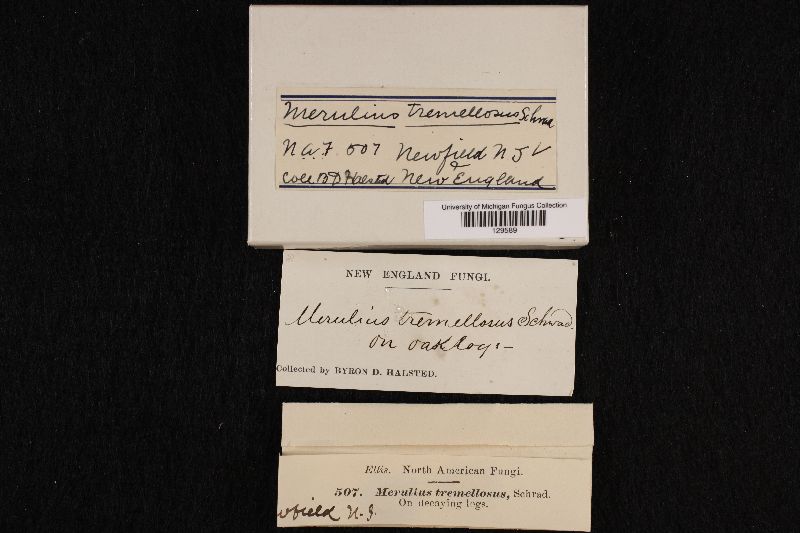 Merulius tremellosus Schrad
N a. F. 507 Newfield N J
&
Coll B D Halsted New England
University of Michigan Fungus Collection
129589
NEW ENGLAND FUNGI.
Merulius tremellosus Schrad.
on oak logs –
Collected by BYRON D. HALSTED.
Ellis. North American Fungi.
507. Merulius tremellosus, Schrad.
On decaying logs.
wfield N. J.